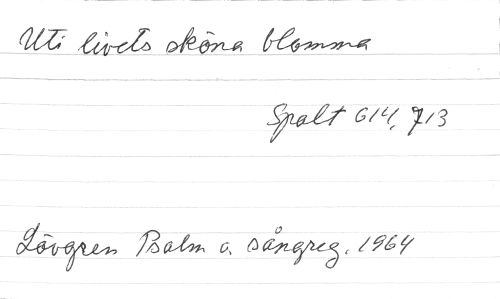 Uti livets sköna blomma
Spalt 614, 713
Lövgren Psalm o. sångreg. 1964